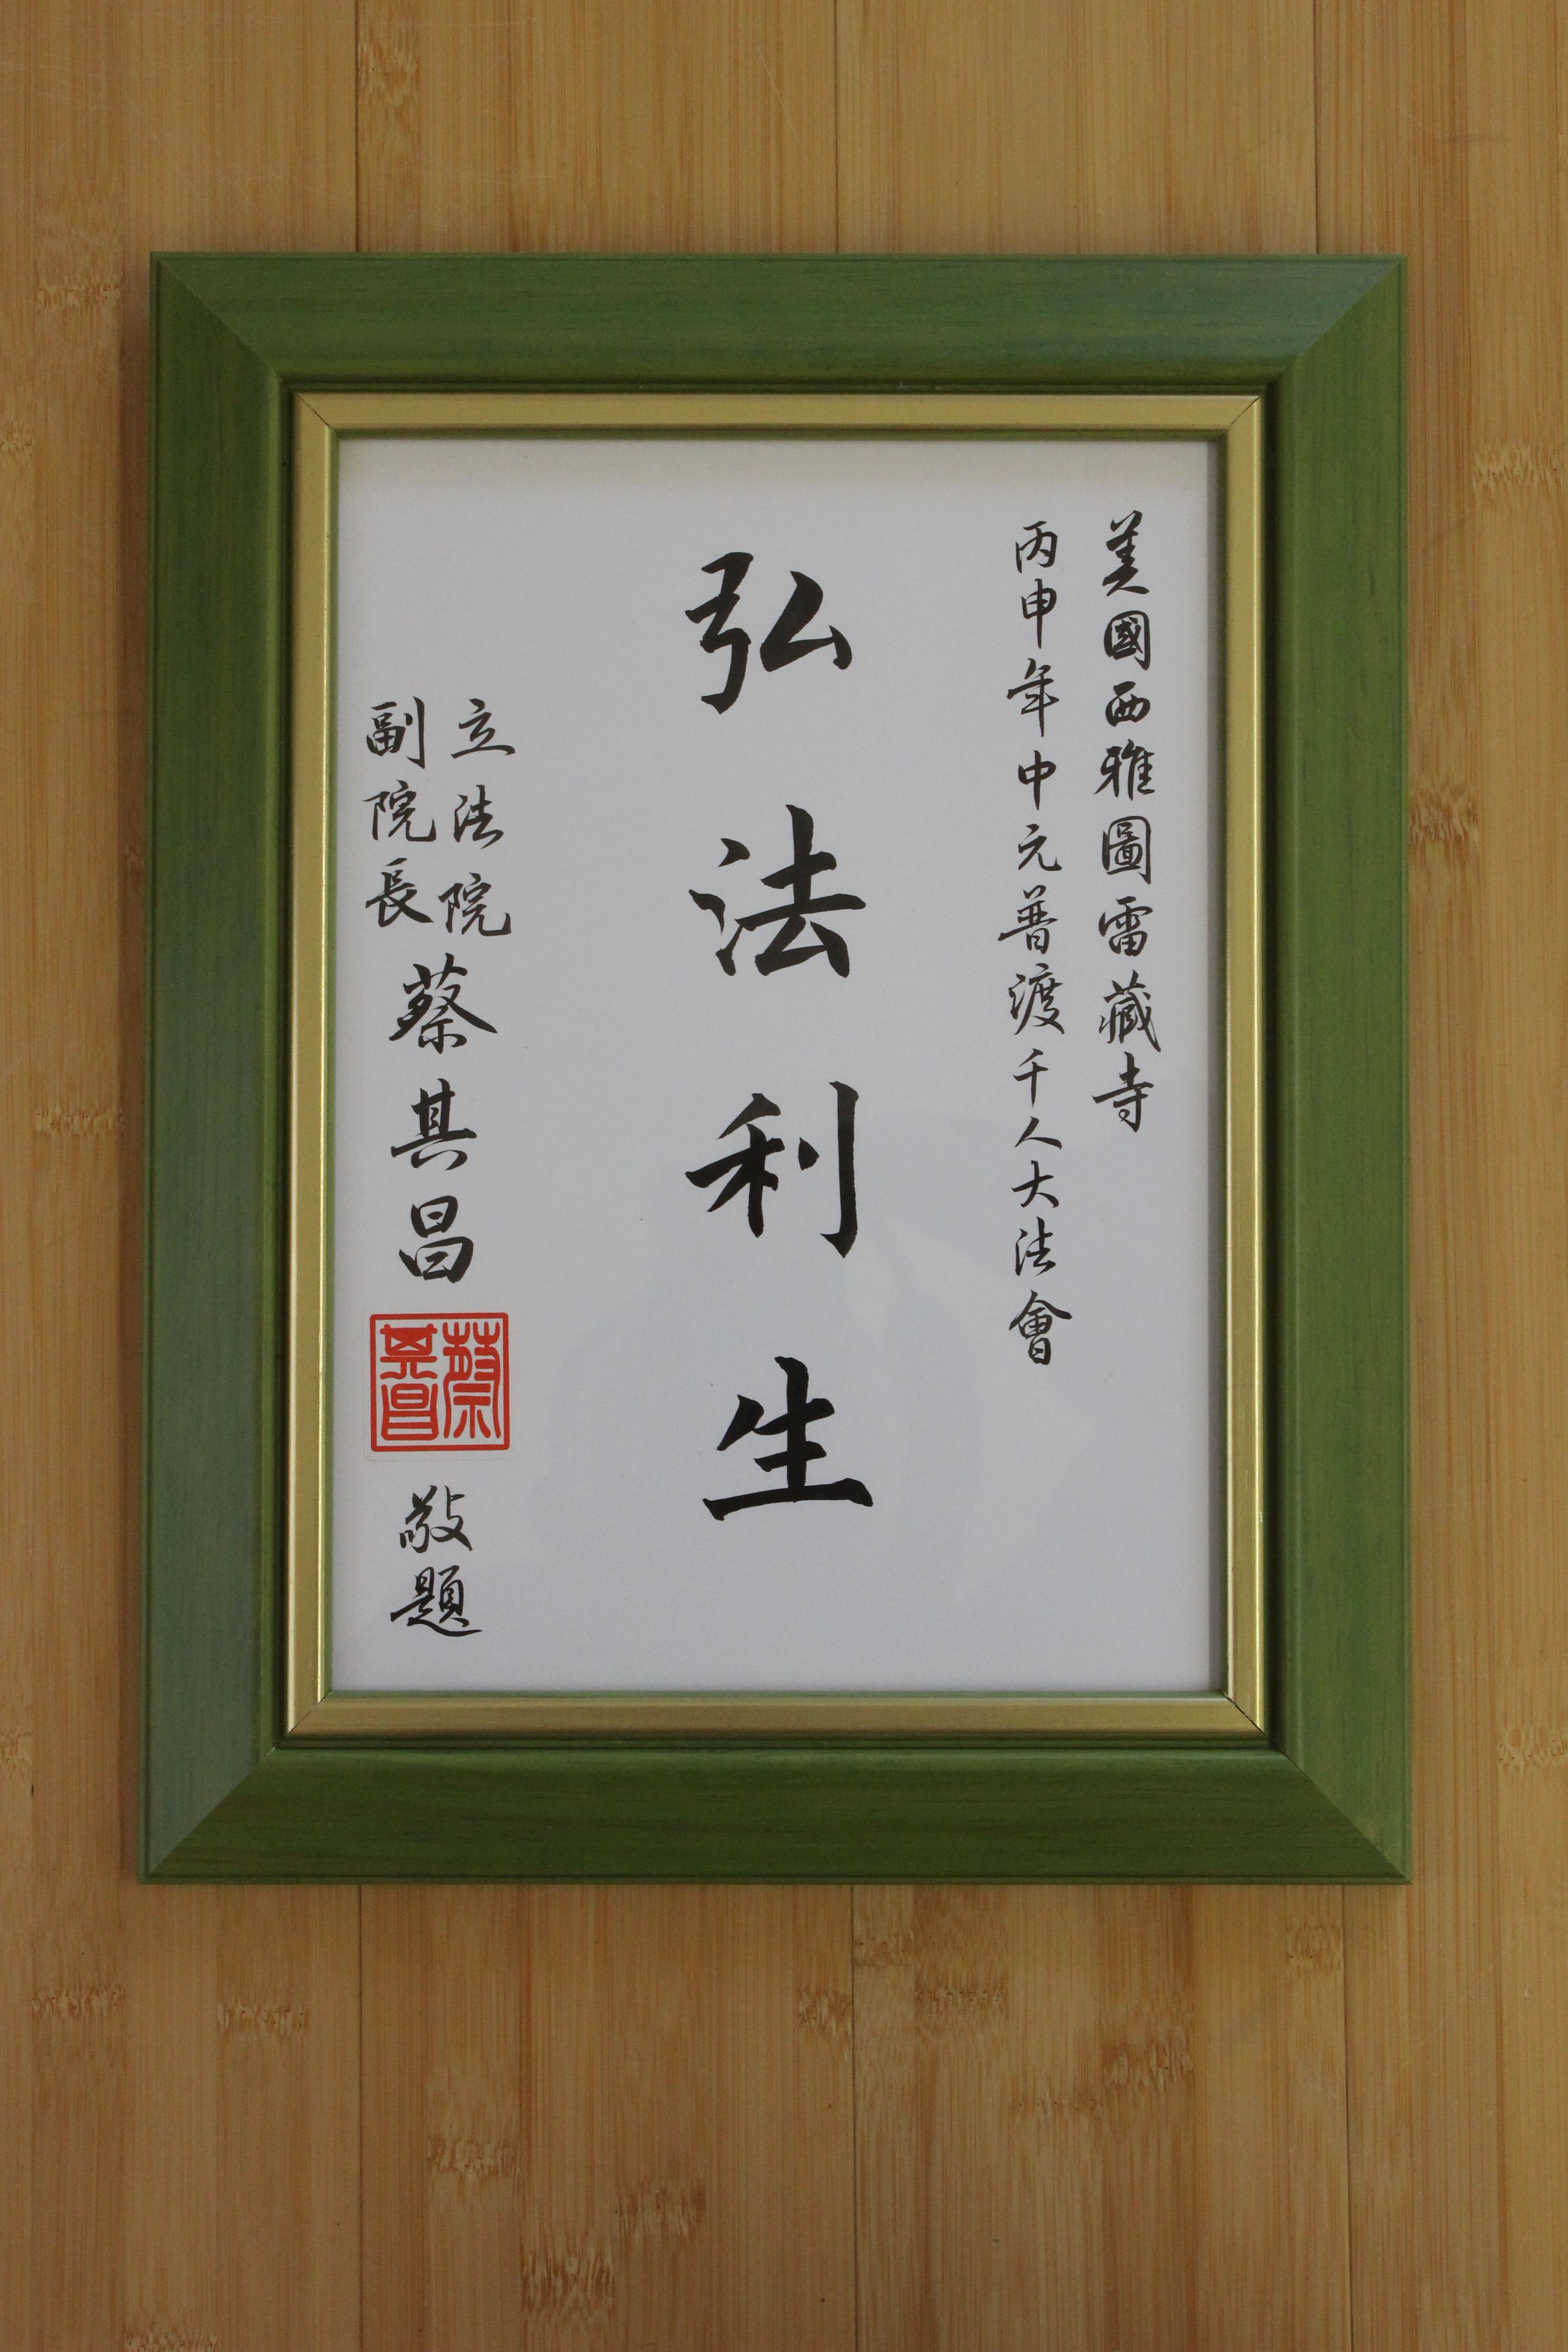 美國西雅圖雷藏寺
丙申年中元普渡千人大法會
弘法利生
立法院
副院長
蔡其昌
蔡其昌
敬題